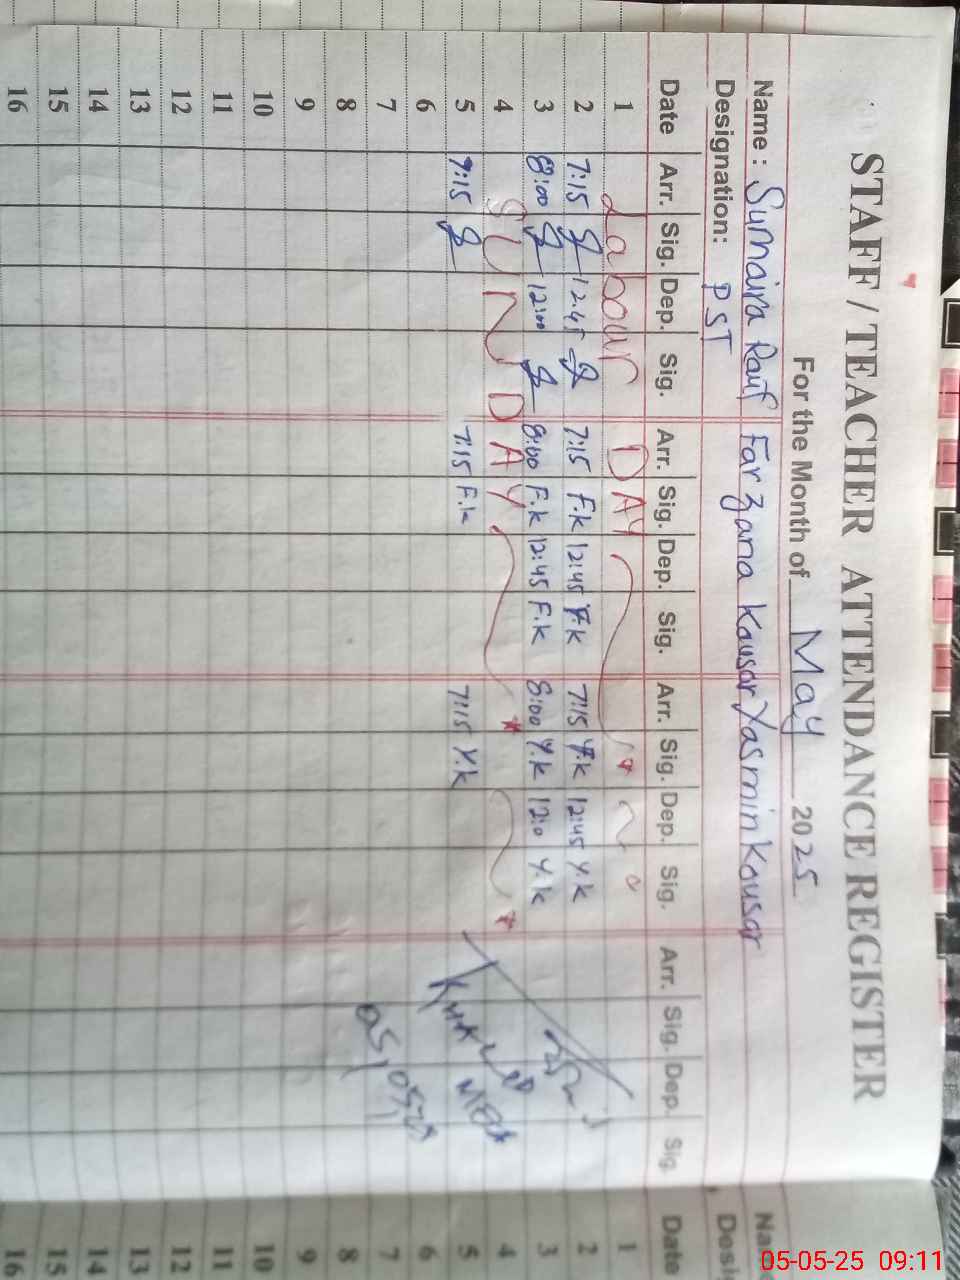 STAFF / TEACHER ATTENDANCE REGISTER
For the Month of May 2025
Name : Sumaira Rauf Farzana Kousar Yasmin Kousar
Designation: PST
Date Arr. Sig. Dep. Sig. Arr. Sig. Dep. Sig. Arr. Sig. Dep. Sig. Arr. Sig. Dep. Sig.
1 Labour DAY
2 7:15 12:45 7:15 F.K 12:45 F.K 7:15 Y.K 12:45 Y.K
3 8:00 12:00 8:00 F.K 12:45 F.K 8:00 Y.K 12:0 Y.K
4 SUNDAY
5 7:15 7:15 F.K 7:15 Y.K
6
7
8
9
10
11
12
13
14
15
16
Date
1
2
3
4
5
6
7
8
9
10
11
12
13
14
15
16
05-05-25 09:11